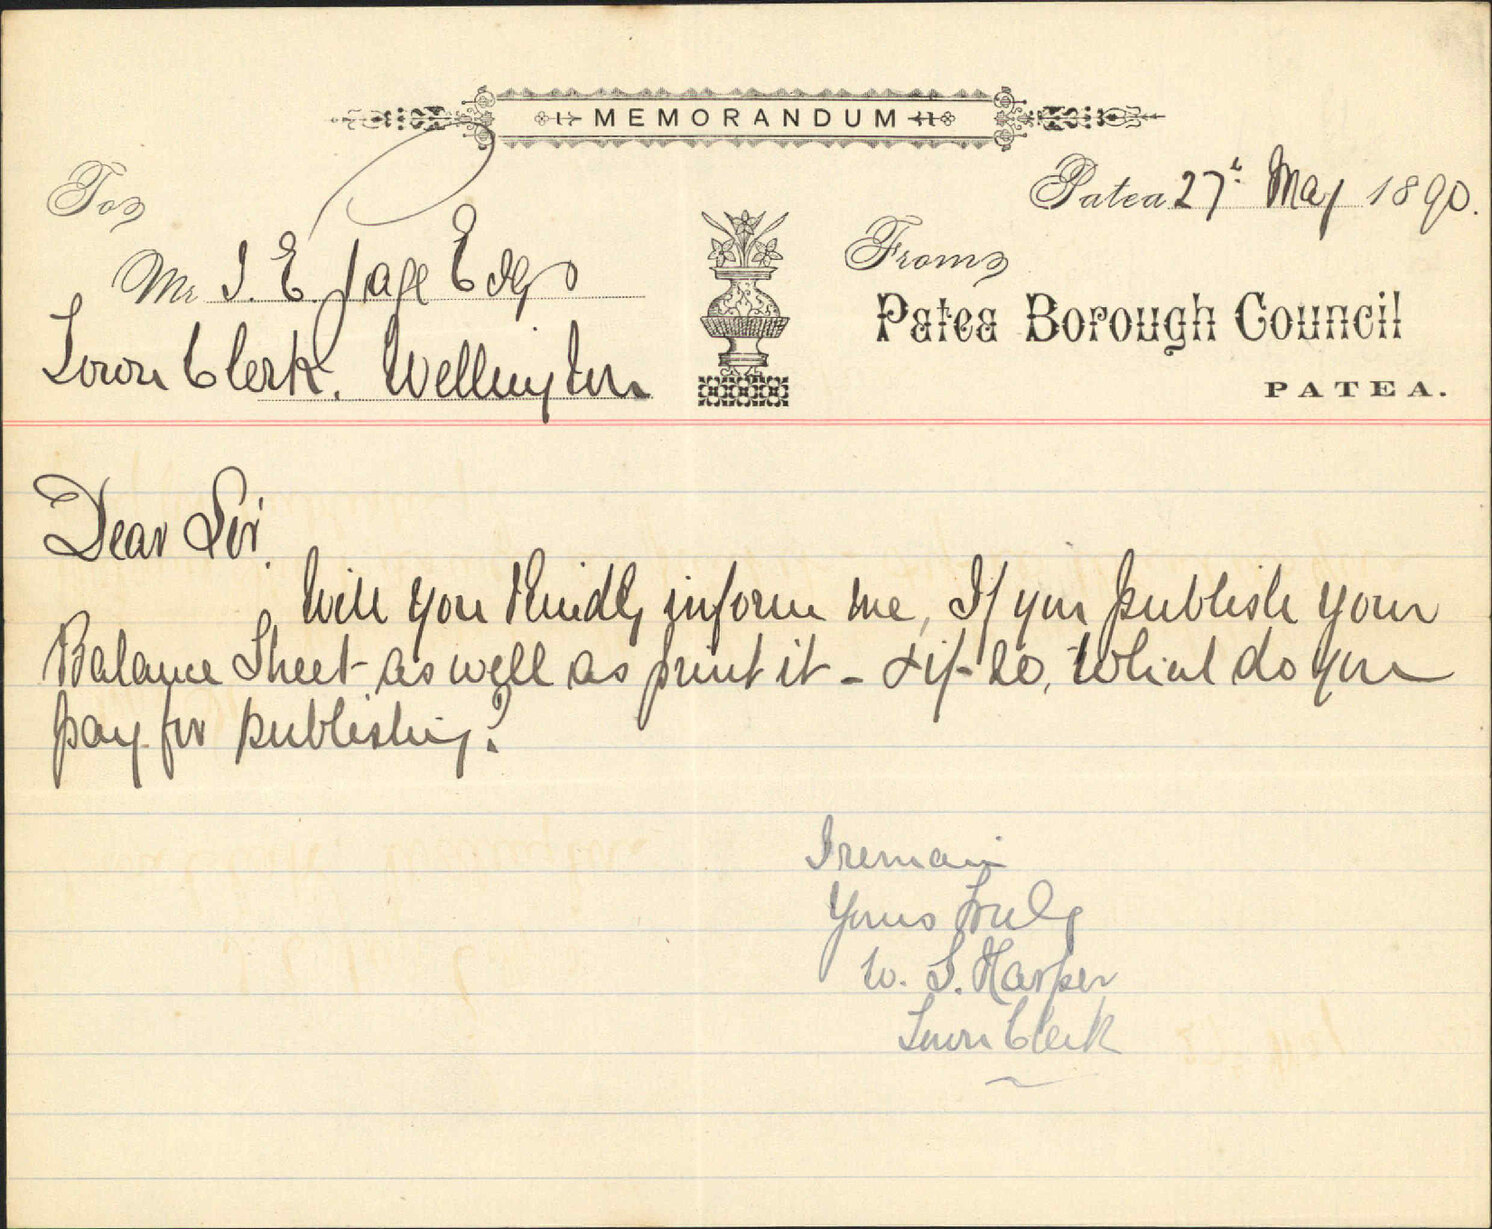 MEMORANDUM
Patea 27t May 1890.
To
From
Mr J. E. Page Esqr
Patea Borough Council
Town Clerk. Wellington
PATEA.
Dear Sir.
Will you Kindly inform me, If you publish your
Balance Sheet as well as print it - & if so, What do you
pay for publishing?
I remain
Yours Truly
W. S. Harper
Town Clerk